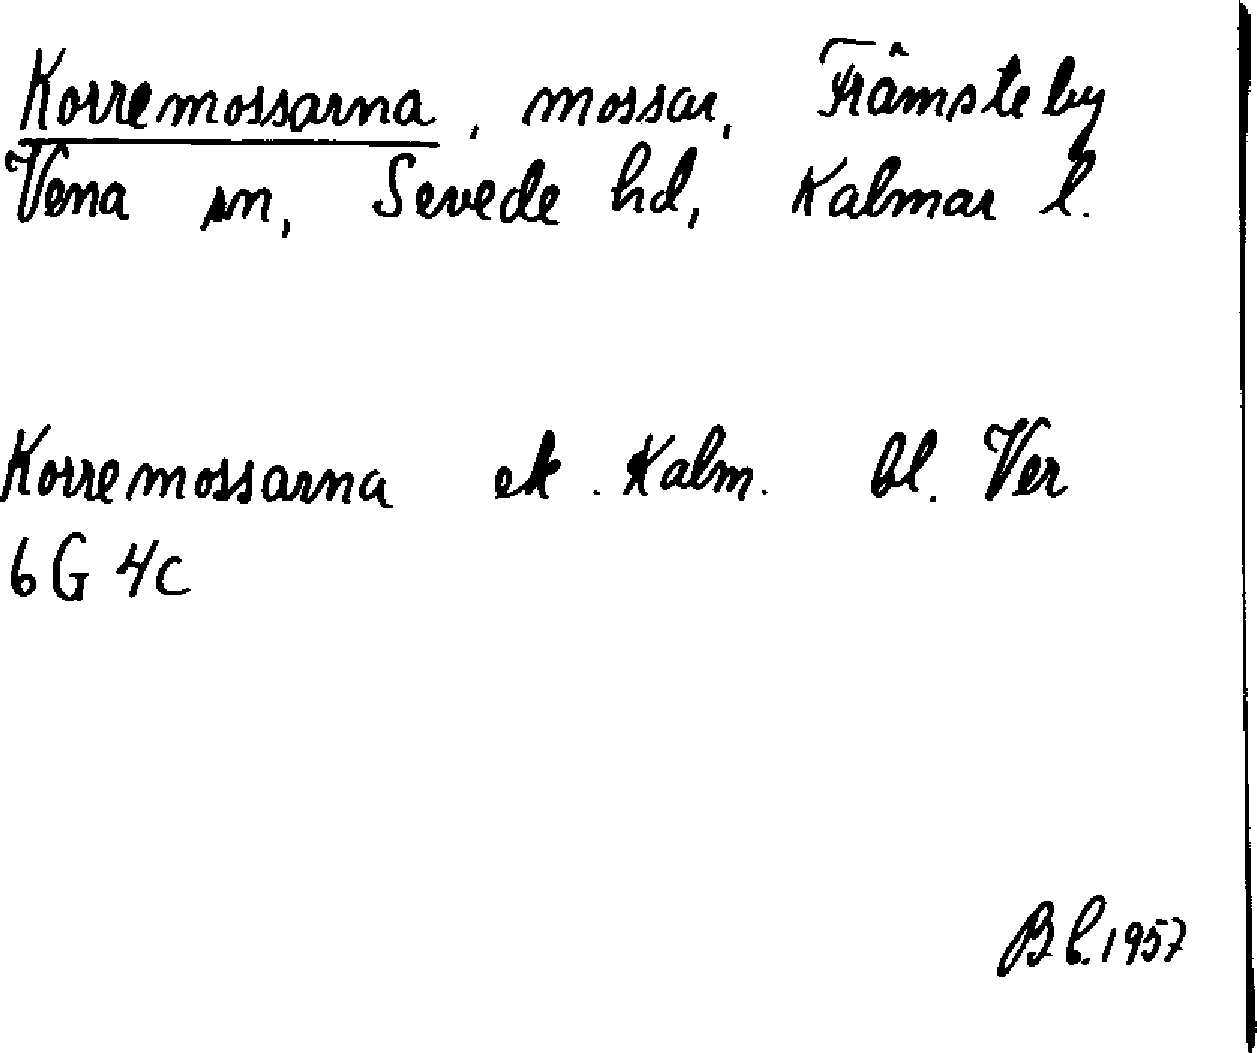 Korremossarna, mossar, Främsteby
Vena sn, Sevede hd, Kalmar l.
Korremossarna ek. Kalm. bl. Ver
6G 4c
Bl. 1957